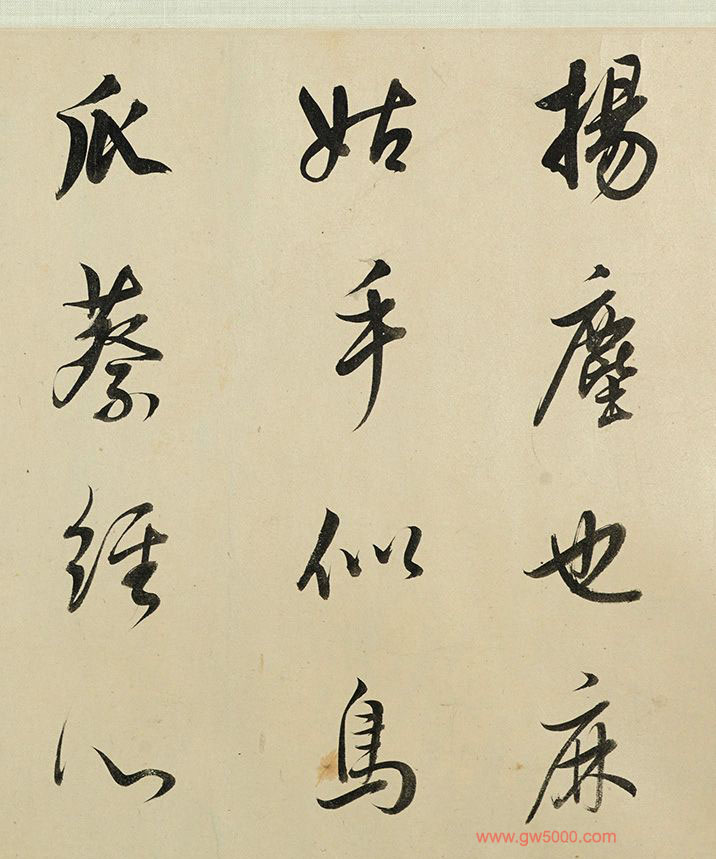 揚塵也麻
姑手似鳥
爪蔡經心
www.gw5000.com